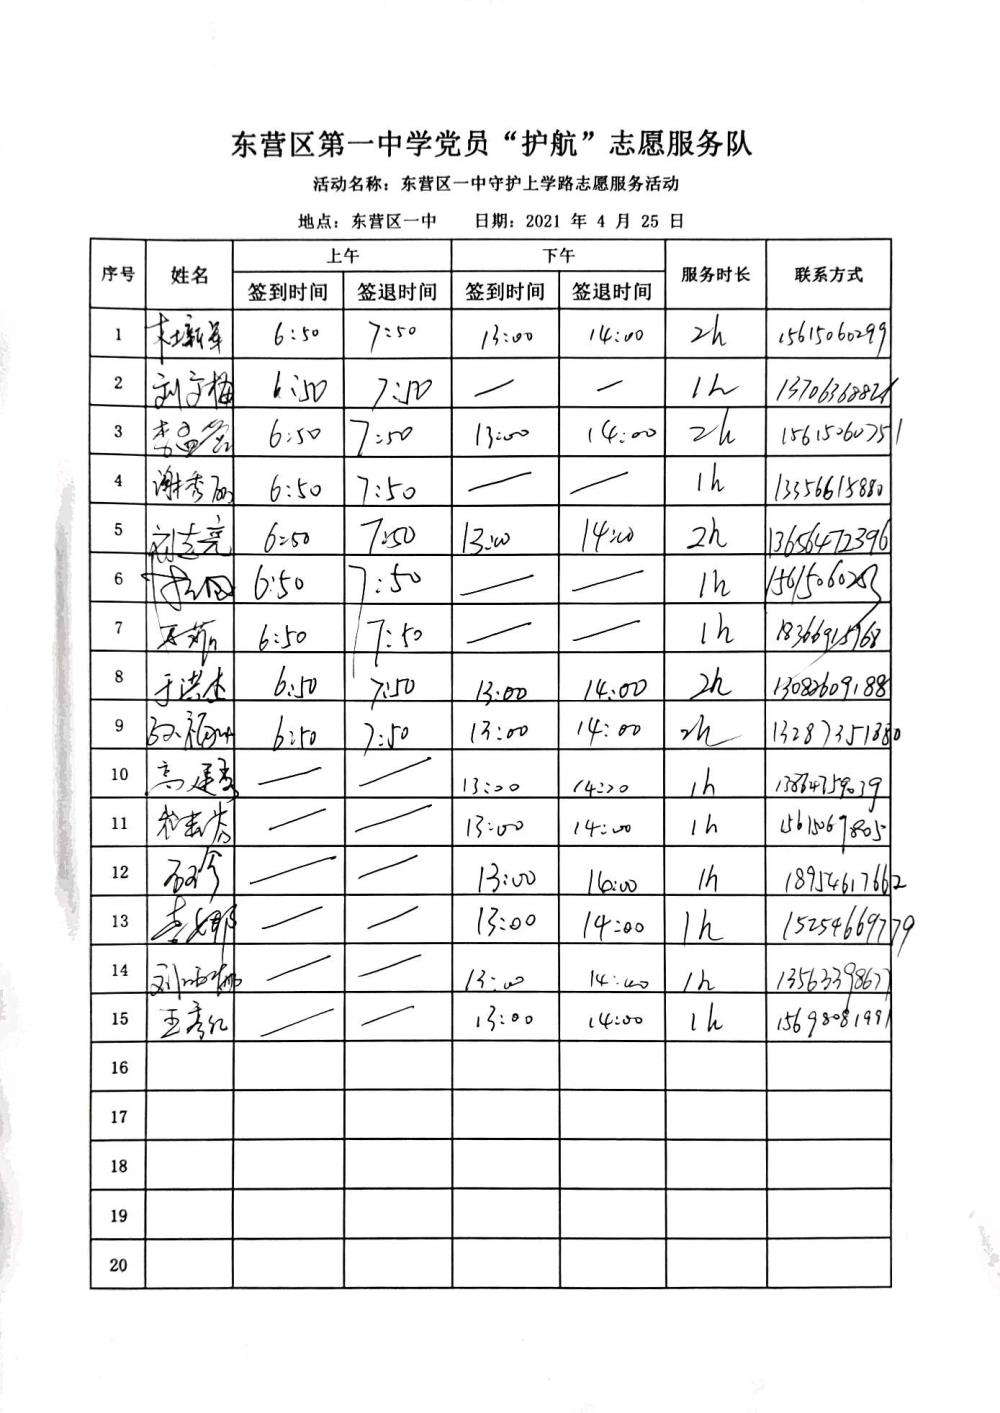 东营区第一中学党员“护航”志愿服务队
活动名称：东营区一中守护上学路志愿服务活动
地点：东营区一中 日期：2021 年 4 月 25 日
序号 姓名 上午 下午 服务时长 联系方式
签到时间 签退时间 签到时间 签退时间
1 6:50 7:50 13:00 14:00 2h 15615060299
2 刘文梅 6:50 7:50 — — 1h
3 李孟营 6:50 7:50 13:00 14:00 2h 15615060751
4 谢秀丽 6:50 7:50 — — 1h 13356615880
5 刘志亮 6:50 7:50 13:00 14:00 2h 13656472396
6 6:50 7:50 — — 1h
7 6:50 7:50 — — 1h 18366915968
8 于洪杰 6:50 7:50 13:00 14:00 2h 13082609188
9 6:50 7:50 13:00 14:00 2h 13287351880
10 — — 13:00 14:00 1h
11 — — 13:00 14:00 1h 15615069805
12 — — 13:00 14:00 1h 18954617662
13 李娜 — — 13:00 14:00 1h 15254669779
14 — — 13:00 14:00 1h 13563398677
15 王秀红 — — 13:00 14:00 1h 15698081991
16
17
18
19
20